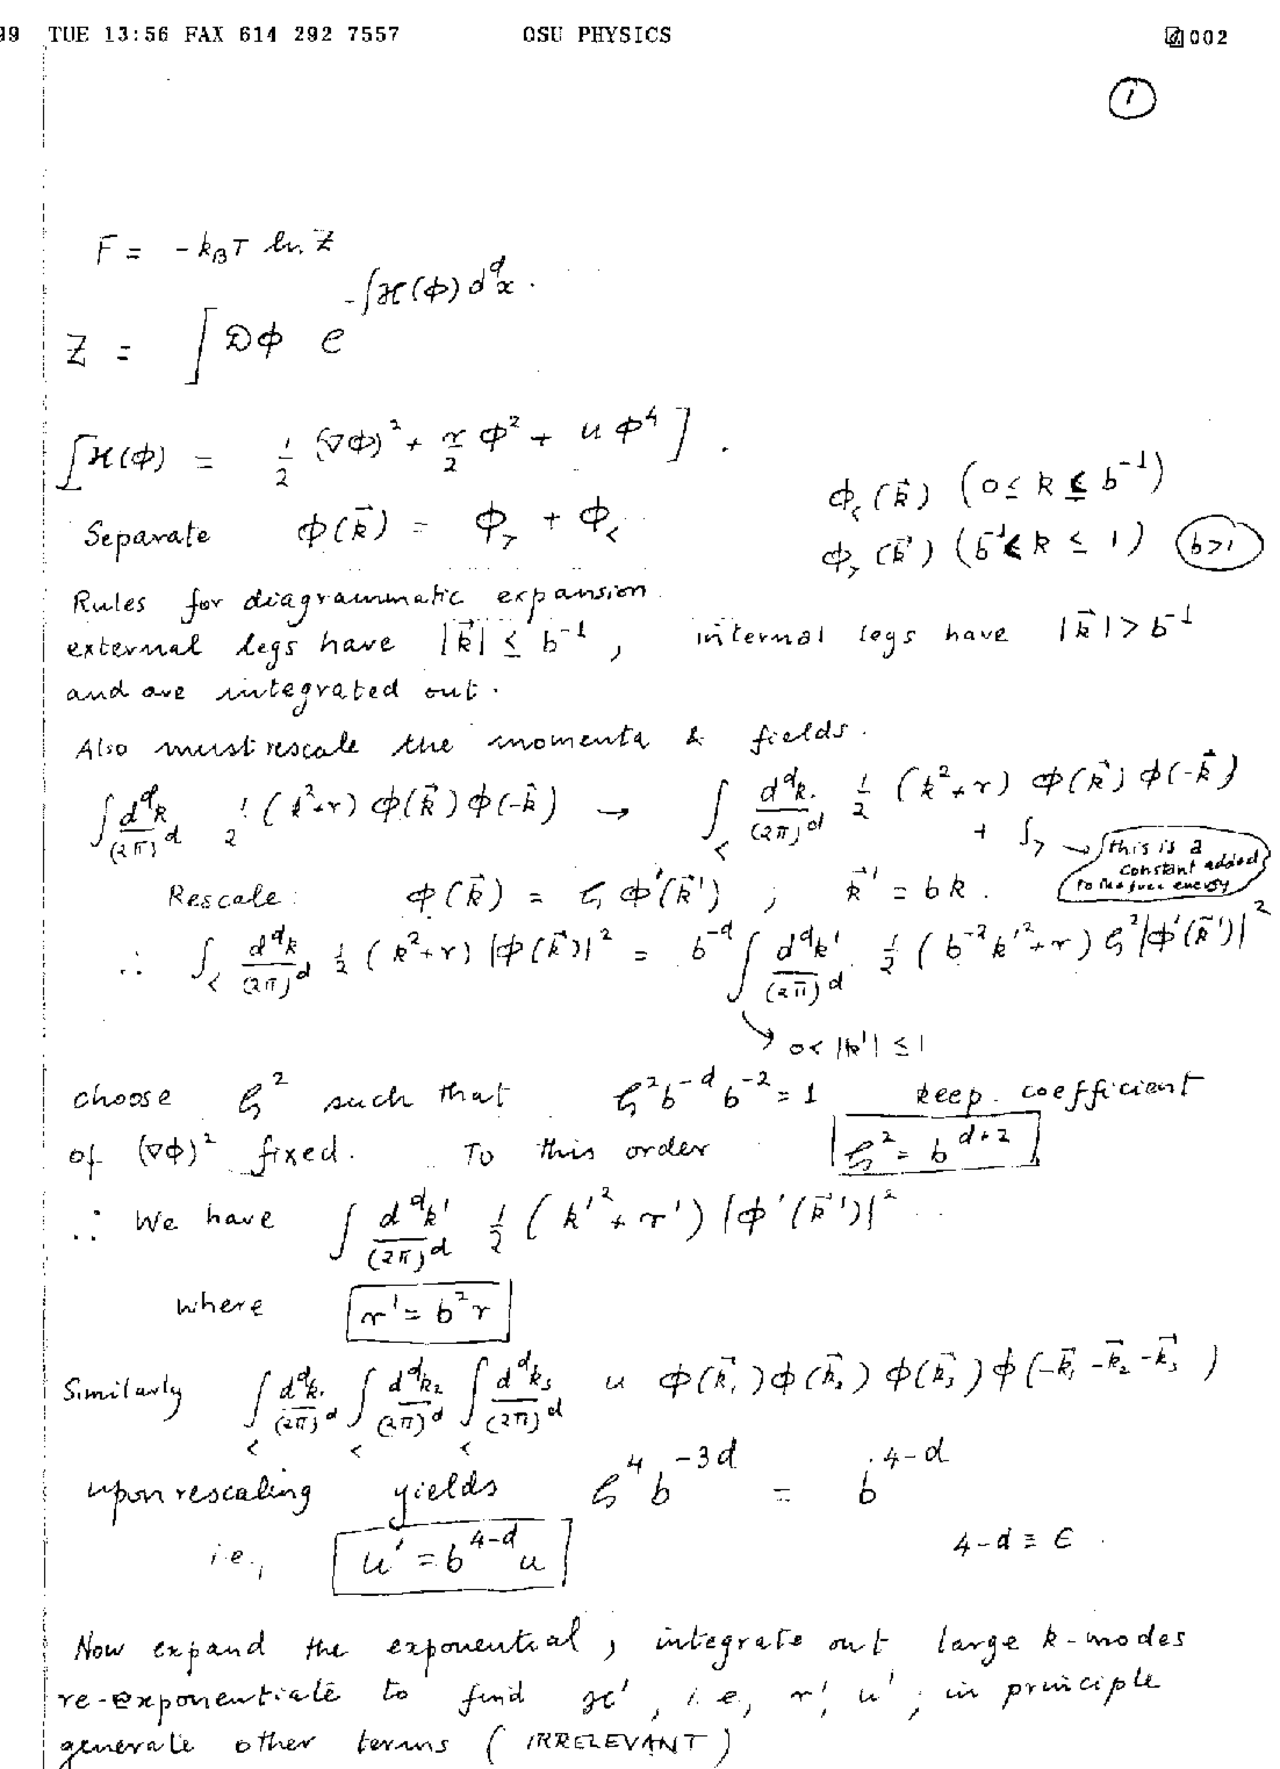 99 TUE 13:56 FAX 614 292 7557 OSU PHYSICS 002
1
F = -k_B T ln Z
Z = ∫ Dϕ e^{-∫ℋ(ϕ) d^d x}.
[ℋ(ϕ) = 1/2 (∇ϕ)^2 + r/2 ϕ^2 + u ϕ^4].
ϕ_<(k⃗) (0 ≤ k ≤ b^{-1})
Separate ϕ(k⃗) = ϕ_> + ϕ_<
ϕ_>(k⃗) (b^{-1} < k ≤ 1) b>1
Rules for diagrammatic expansion.
external legs have |k⃗| ≤ b^{-1}, internal legs have |k⃗| > b^{-1}
and are integrated out.
Also must rescale the momenta & fields.
∫ d^d k/(2π)^d 1/2 (k^2+r) ϕ(k⃗) ϕ(-k⃗) → ∫_< d^d k/(2π)^d 1/2 (k^2+r) ϕ(k⃗) ϕ(-k⃗)
+ ∫_> → this is a
constant added
to the free energy
Rescale: ϕ(k⃗) = ζ ϕ'(k⃗') ; k⃗' = bk.
∴ ∫_< d^d k/(2π)^d 1/2 (k^2+r) |ϕ(k⃗)|^2 = b^{-d} ∫ d^d k'/(2π)^d 1/2 (b^{-2}k'^2+r) ζ^2 |ϕ'(k⃗')|^2
→ 0< |k'| ≤ 1
choose ζ^2 such that ζ^2 b^{-d} b^{-2} = 1 keep coefficient
of (∇ϕ)^2 fixed. To this order ζ^2 = b^{d+2}
∴ We have ∫ d^d k'/(2π)^d 1/2 (k'^2 + r') |ϕ'(k⃗')|^2
where r' = b^2 r
Similarly ∫_< d^d k_1/(2π)^d ∫_< d^d k_2/(2π)^d ∫_< d^d k_3/(2π)^d u ϕ(k⃗_1) ϕ(k⃗_2) ϕ(k⃗_3) ϕ(-k⃗_1 -k⃗_2 -k⃗_3)
upon rescaling yields ζ^4 b^{-3d} = b^{4-d}
i.e., u' = b^{4-d} u 4-d ≡ ε.
Now expand the exponential, integrate out large k-modes
re-exponentiate to find ℋ', i.e, r', u'; in principle
generate other terms (IRRELEVANT)